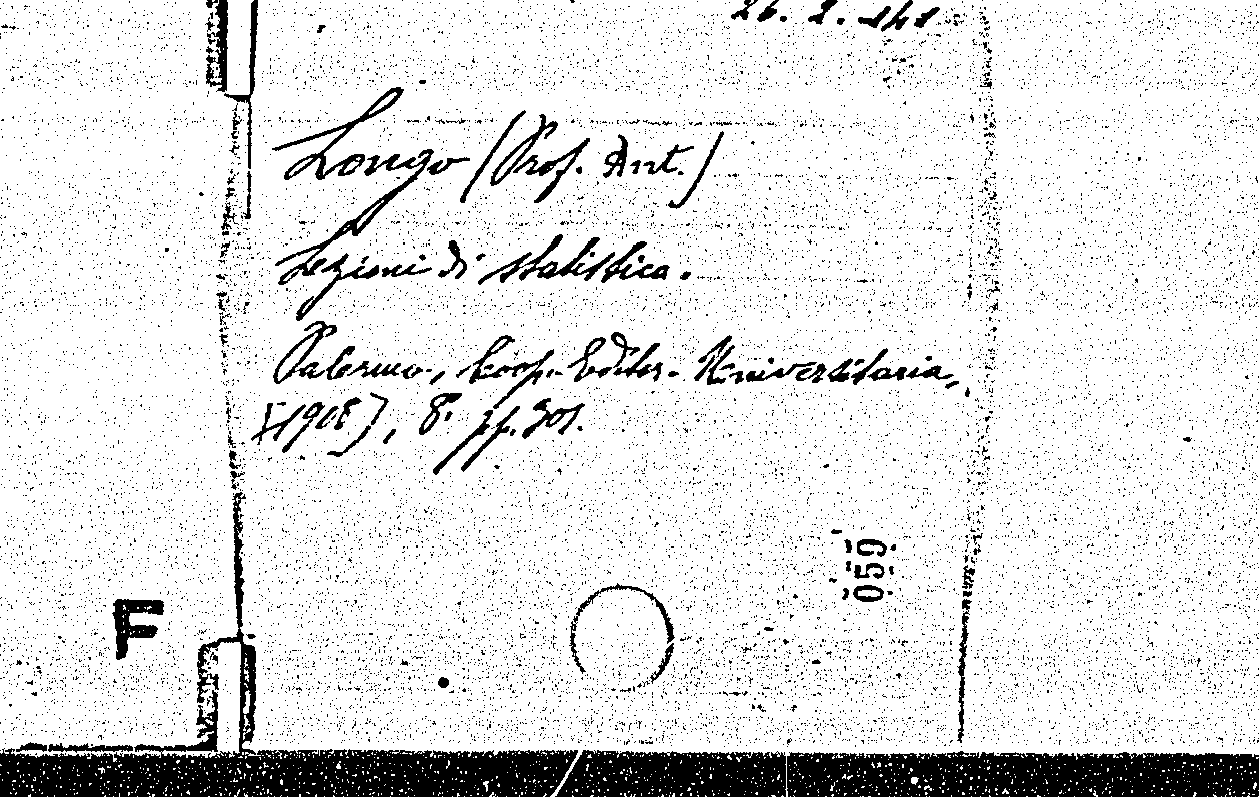 26. 2. 141
Longo (Prof. Ant.)
Lezioni di statistica.
Palermo, Coop. Editor. Universitaria,
[1908], 8º pp. 301.
059
F